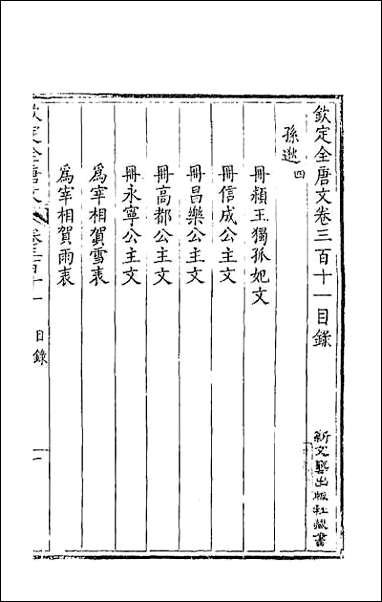 欽定全唐文卷三百十一目錄
新文藝出版社藏書
孫逖四
冊潁王獨孤妃文
冊信成公主文
冊昌樂公主文
冊高都公主文
冊永寧公主文
爲宰相賀雪表
爲宰相賀雨表
欽定全唐文
目錄
一